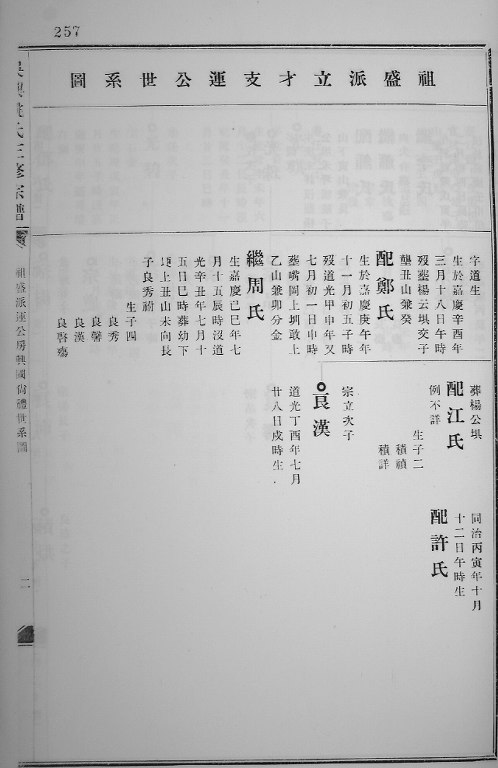 257
祖盛派立才支運公世系圖
字道生
生於嘉慶辛酉年
三月十八日午時
歿塟楊云垻交子
壟丑山兼癸
配鄭氏
生於嘉慶庚午年
十一月初五子時
歿道光甲申年又
七月初一日申時
塟嘴岡上圳敢上
乙山兼卯分金
繼周氏
生嘉慶己巳年七
月十五辰時沒道
光辛丑年七月十
五日巳時葬幼下
上丑山未向長
子良秀祔
生子四
良秀
良馨
良漢
良啓殤
葬楊公垻
配江氏
例不詳
生子二
積禎
積詳
宗立次子
良漢
道光丁酉年七月
廿八日戌時生
同治丙寅年十月
十二日午時生
配許氏
氏三修宗譜
祖盛派運公房興國尚禮世系圖
二